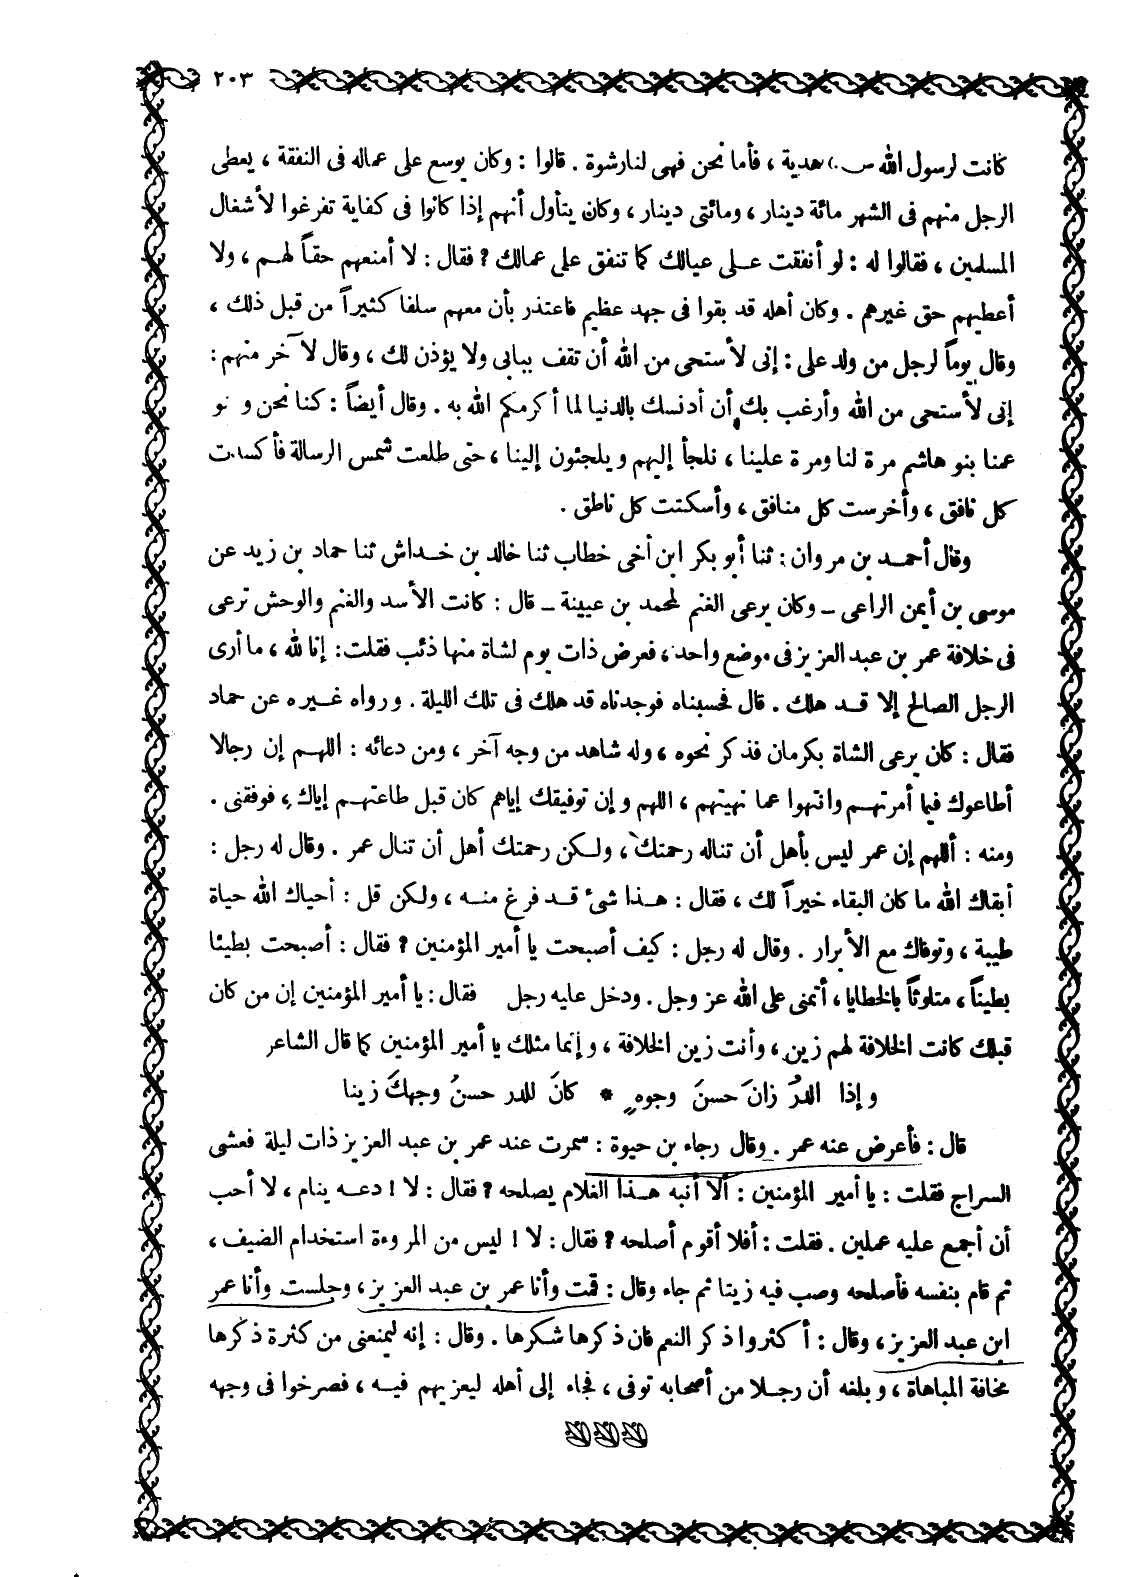 ٢٠٣
كانت لرسول الله هدية ، فأما نحن فهى لنا رشوة . قالوا : وكان يوسع على عماله فى النفقة ، يعطى
الرجل منهم فى الشهر مائة دينار ، ومائتى دينار ، وكان يتأول أنهم إذا كانوا فى كفاية تفرغوا لأشغال
المسلمين ، فقالوا له : لو أنفقت عـلى عيالك كما تنفق على عمالك ؟ فقال : لا أمنعهم حقاً لهـم ، ولا
أعطيهم حق غيرهم . وكان أهله قد بقوا فى جهد عظيم فاعتذر بأن معهم سلفا كثيراً من قبل ذلك ،
وقال يوماً لرجل من ولد على : إنى لأستحى من الله أن تقف ببابى ولا يؤذن لك ، وقال لآخر منهم :
إنى لأستحى من الله وأرغب بك أن أدنسك بالدنيا لما أكرمكم الله به . وقال أيضاً : كنا نحن و نو
عمنا بنو هاشم مرة لنا ومرة علينا ، نلجأ إليهم ويلجئون إلينا ، حتى طلعت شمس الرسالة فأكسدت
كل نافق ، وأخرست كل منافق ، وأسكتت كل ناطق .
وقال أحمـد بن مروان : ثنا أبو بكر ابن أخى خطاب ثنا خالد بن خـداش ثنا حماد بن زيد عن
موسى بن أيمن الراعى ـ وكان يرعى الغنم لمحمد بن عيينة ـ قال : كانت الأسد والغنم والوحش ترعى
فى خلافة عمر بن عبد العزيز فى موضع واحد ، فعرض ذات يوم لشاة منها ذئب فقلت : إنا لله ، ما أرى
الرجل الصالح إلا قـد هلك . قال فحسبناه فوجدناه قد هلك فى تلك الليلة . ورواه غـيره عن حماد
فقال : كان يرعى الشاة بكرمان فذكر نحوه ، وله شاهد من وجه آخر ، ومن دعائه : اللهـم إن رجالا
أطاعوك فيما أمرتهـم وانتهوا عما نهيتهم ، اللهم وإن توفيقك إياهم كان قبل طاعتهـم إياك ، فوفقنى .
ومنه : أللهم إن عمر ليس بأهل أن تناله رحمتك ، ولـكن رحمتك أهل أن تنال عمر . وقال له رجل :
أبقاك الله ما كان البقاء خيراً لك ، فقال : هـذا شئ قـد فرغ منـه ، ولـكن قل : أحياك الله حياة
طيبة ، وتوفاك مع الأبرار . وقال له رجل : كيف أصبحت يا أمير المؤمنين ؟ فقال : أصبحت بطيئا
بطيناً ، متلوثاً بالخطايا ، أتمنى على الله عز وجل . ودخل عليه رجل فقال : يا أمير المؤمنين إن من كان
قبلك كانت الخلافة لهم زين ، وأنت زين الخلافة ، وإنما مثلك يا أمير المؤمنين كما قال الشاعر
وإذا الدرُ زانَ حسنَ وجوهٍ * كانَ للدر حسنُ وجهكَ زينا
قال : فأعرض عنه عمر . وقال رجاء بن حيوة : سمرت عند عمر بن عبد العزيز ذات ليلة فعشى
السراج فقلت : يا أمير المؤمنين : ألا أنبه هـذا الغلام يصلحه ؟ فقال : لا ! دعـه ينام ، لا أحب
أن أجمع عليه عملين . فقلت : أفلا أقوم أصلحه ؟ فقال : لا ! ليس من المروءة استخدام الضيف ،
ثم قام بنفسه فأصلحه وصب فيه زيتا ثم جاء وقال : قمت وأنا عمر بن عبد العزيز ، وجلست وأنا عمر
ابن عبد العزيز ، وقال : أكثروا ذكر النعم فان ذكرها شكرها . وقال : إنه ليمنعنى من كثرة ذكرها
مخافة المباهاة ، وبلغه أن رجـلا من أصحابه توفى ، فجاء إلى أهله ليعزيهم فيـه ، فصرخوا فى وجهه